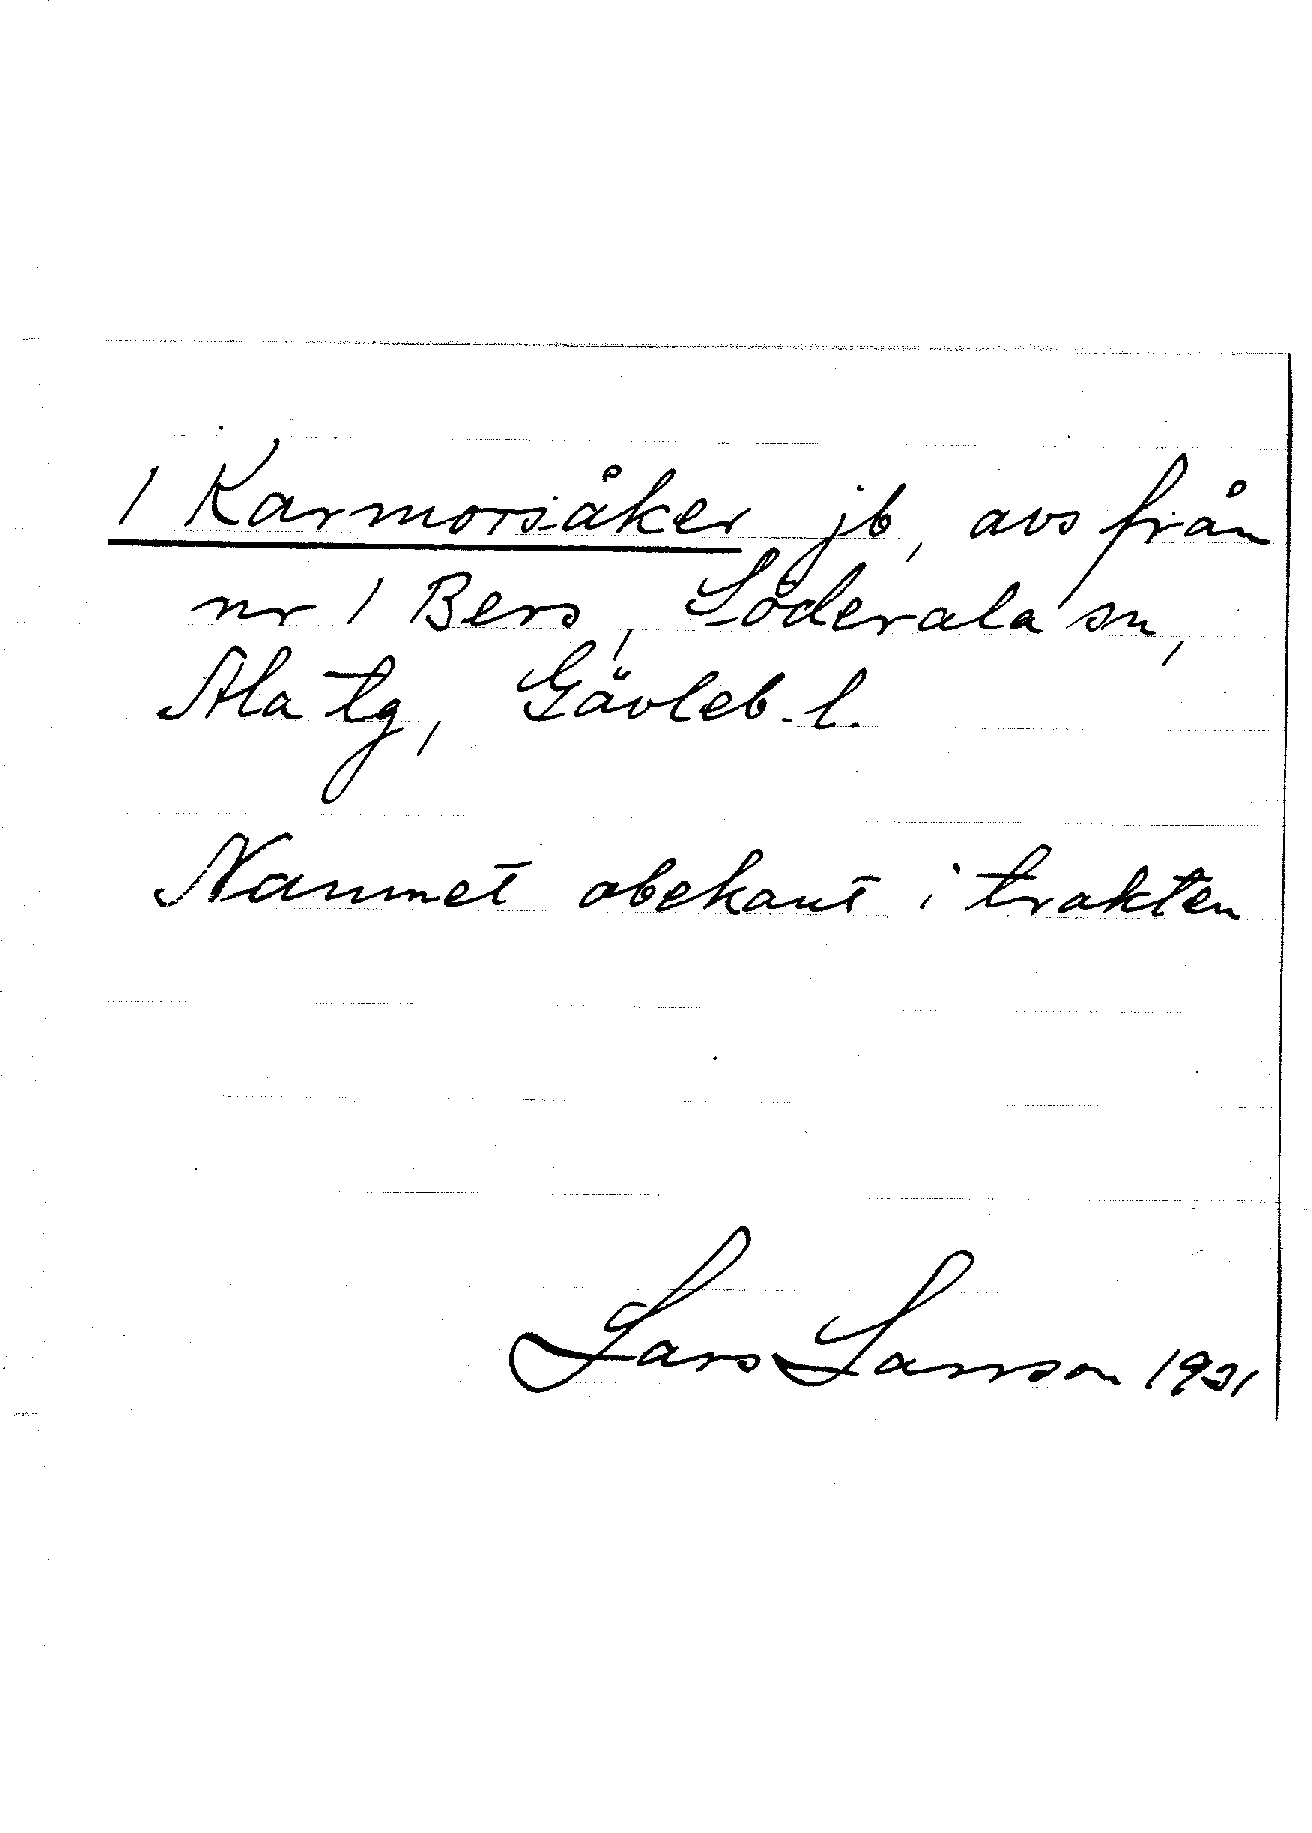 1 Karmorsåker jb, avs från
nr 1 Bers, Söderala sn,
Ala tg, Gävleb. l.
Namnet obekant i trakten
Lars Larsson 1931